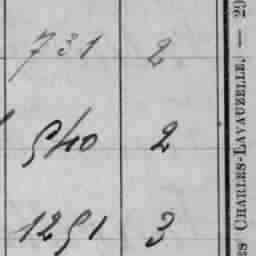 731 2
540 2
1251 3
ES CHARLES-LAVAUZELLE. — 29